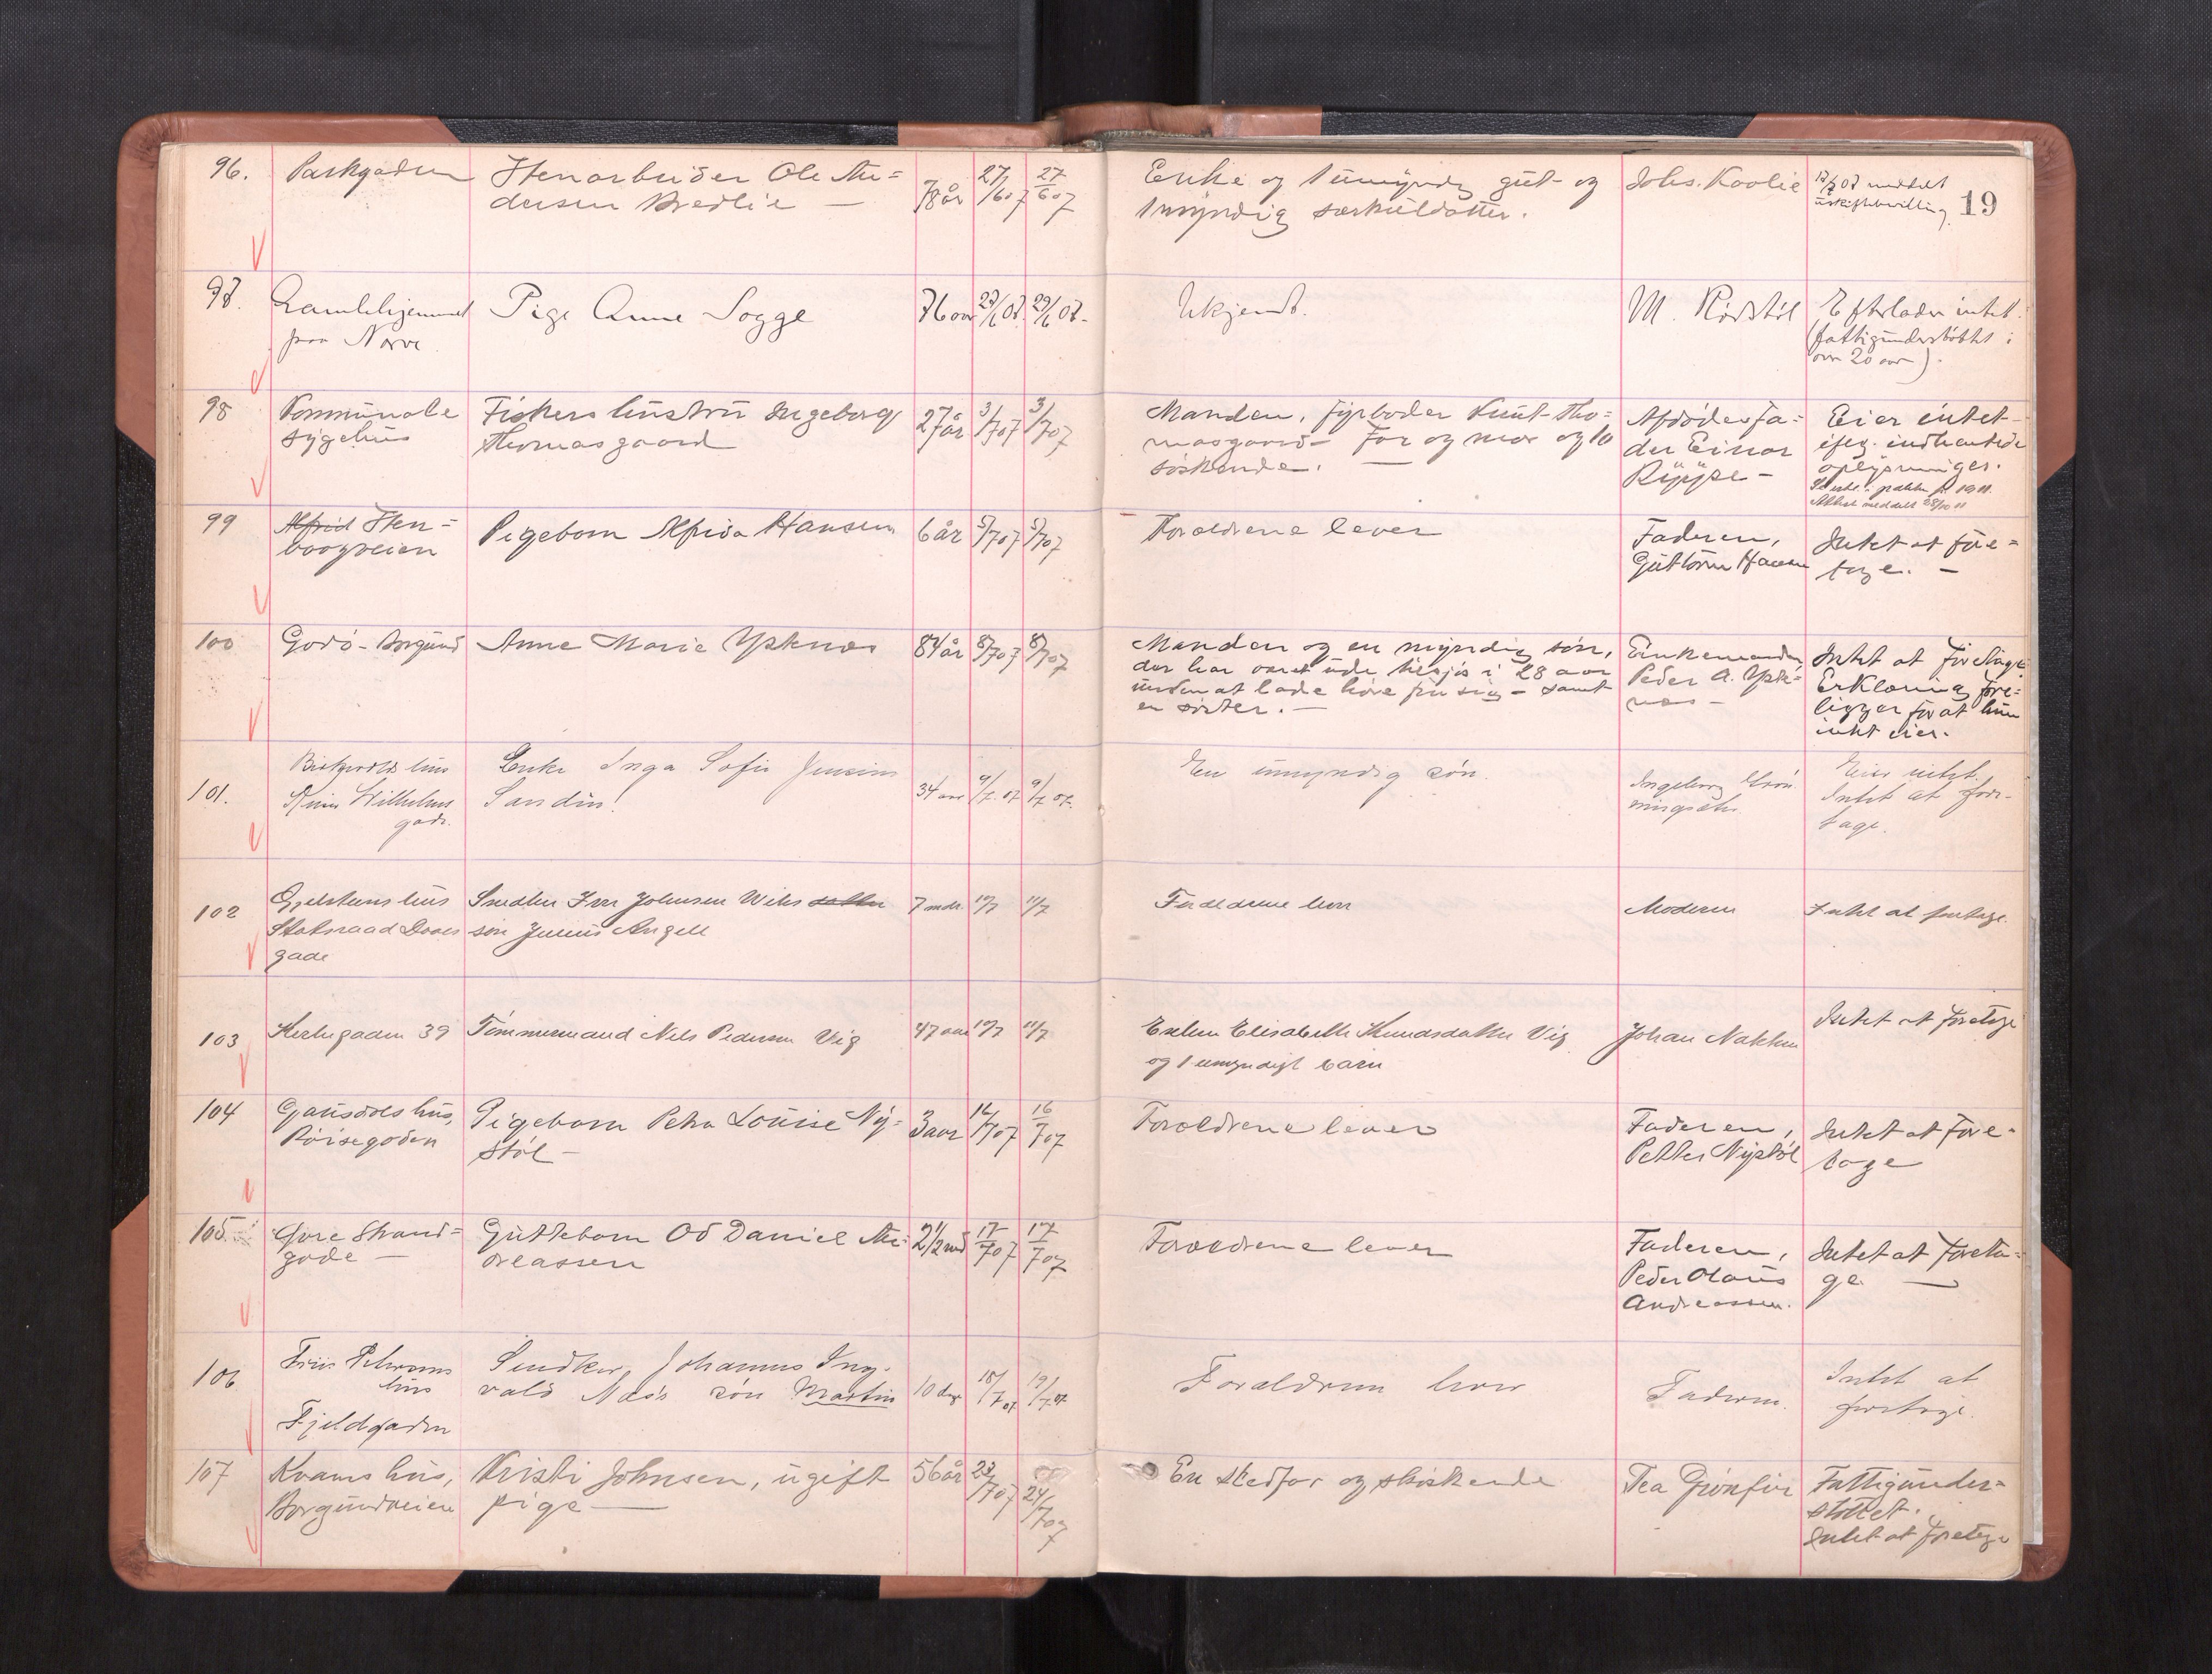 19
96. Parkgaden Stenarbeider Ole An=
dersen Bredlie — 78 år 27/6 07 27/6 07
Enke og 1 umyndig gut og
1 myndig særkuldatter.
Johs. Koolie
meddelt
uskiftebevilling
97. Gamlehjemmet
paa Nørve
Pige Anne Sogge 76 aar 27/6 07. 29/6 07.
Ukjendt.
M. Rødstøl
Efterlader intet.
(fattigunderstøttet i
over 20 aar).
98 Kommunale
sygehus
Fiskers hustru Ingeborg
Thomasgaard
27 år 3/7 07 3/7 07
Manden, fyrbøder Knut Tho=
masgaard — Far og mor og 10
søskende. —
Afdødes fa=
der Einar
Rypge —
Eier intet
ifølg. indhentede
oplysninger.
99 Alfrid Sten=
vaagveien
Pigebarn Alfrida Hansen 6 år 5/7 07 5/7 07
Forældrene lever
Faderen,
Guttorm Hansen
Intet at fore=
tage. —
100 Godø - Borgund Anne Marie Ystenæs 84 år 8/7 07 8/7 07
Manden og en myndig søn,
der har været ude tilsjøs i 28 aar
uden at lade høre fra sig — samt
en søster. —
Enkemanden
Peder A. Yste=
næs —
Intet at foretage
Erklæring fore=
ligger for at hun
intet eier.
101. hus
Keiser Wilhelms
gade.
Enke Inga Sofie Jensine
Sandin!
34 aar 9/7. 07 9/7 07.
En umyndig søn.
Ingeborg
Eier intet.
Intet at fore-
tage.
102 Gjelstens hus
Statsraad Daaes
gade
Snedker Iver Johnsen Wiks datter
søn Julius Angell
7 mdr. 10/7 11/7
Forældrene lever
Moderen
Intet at foretage.
103 Kirkegaden 39 Tømmermand Nils Pedersen Vig 47 aar 10/7 11/7
Enken Elisabeth Knudsdatter Vig
og 1 umyndigt barn
Johan Nakken
Intet at foretage
104 Gausdals hus,
Røisegaden
Pigebarn Petra Louise Ny=
støl —
3 aar 16/7 07 16/7 07
Forældrene lever
Faderen,
Petter Nystøl
Intet at fore=
tage
105. Øvre Strand=
gade —
Guttebarn Od Daniel An=
dreassen
2 1/2 md 17/7 07 17/7 07
Forældrene lever
Faderen,
Peder Olaus
Andreassen.
Intet at foreta=
ge —
106 Friis Petersens
hus
Fjeldgaden
Snedker Johannes Ing-
vald Næs's søn Martin
10 dage 18/7 07 19/7 07
Forældrene lever
Faderen.
Intet at
foretage.
107 Kvams hus,
Borgundveien
Kristi Johnsen, ugift
pige —
56 år 23/7 07 24/7 07
En stedfar og søskende
Tea Grønfur
Fattigunder=
støttet.
Intet at foretage